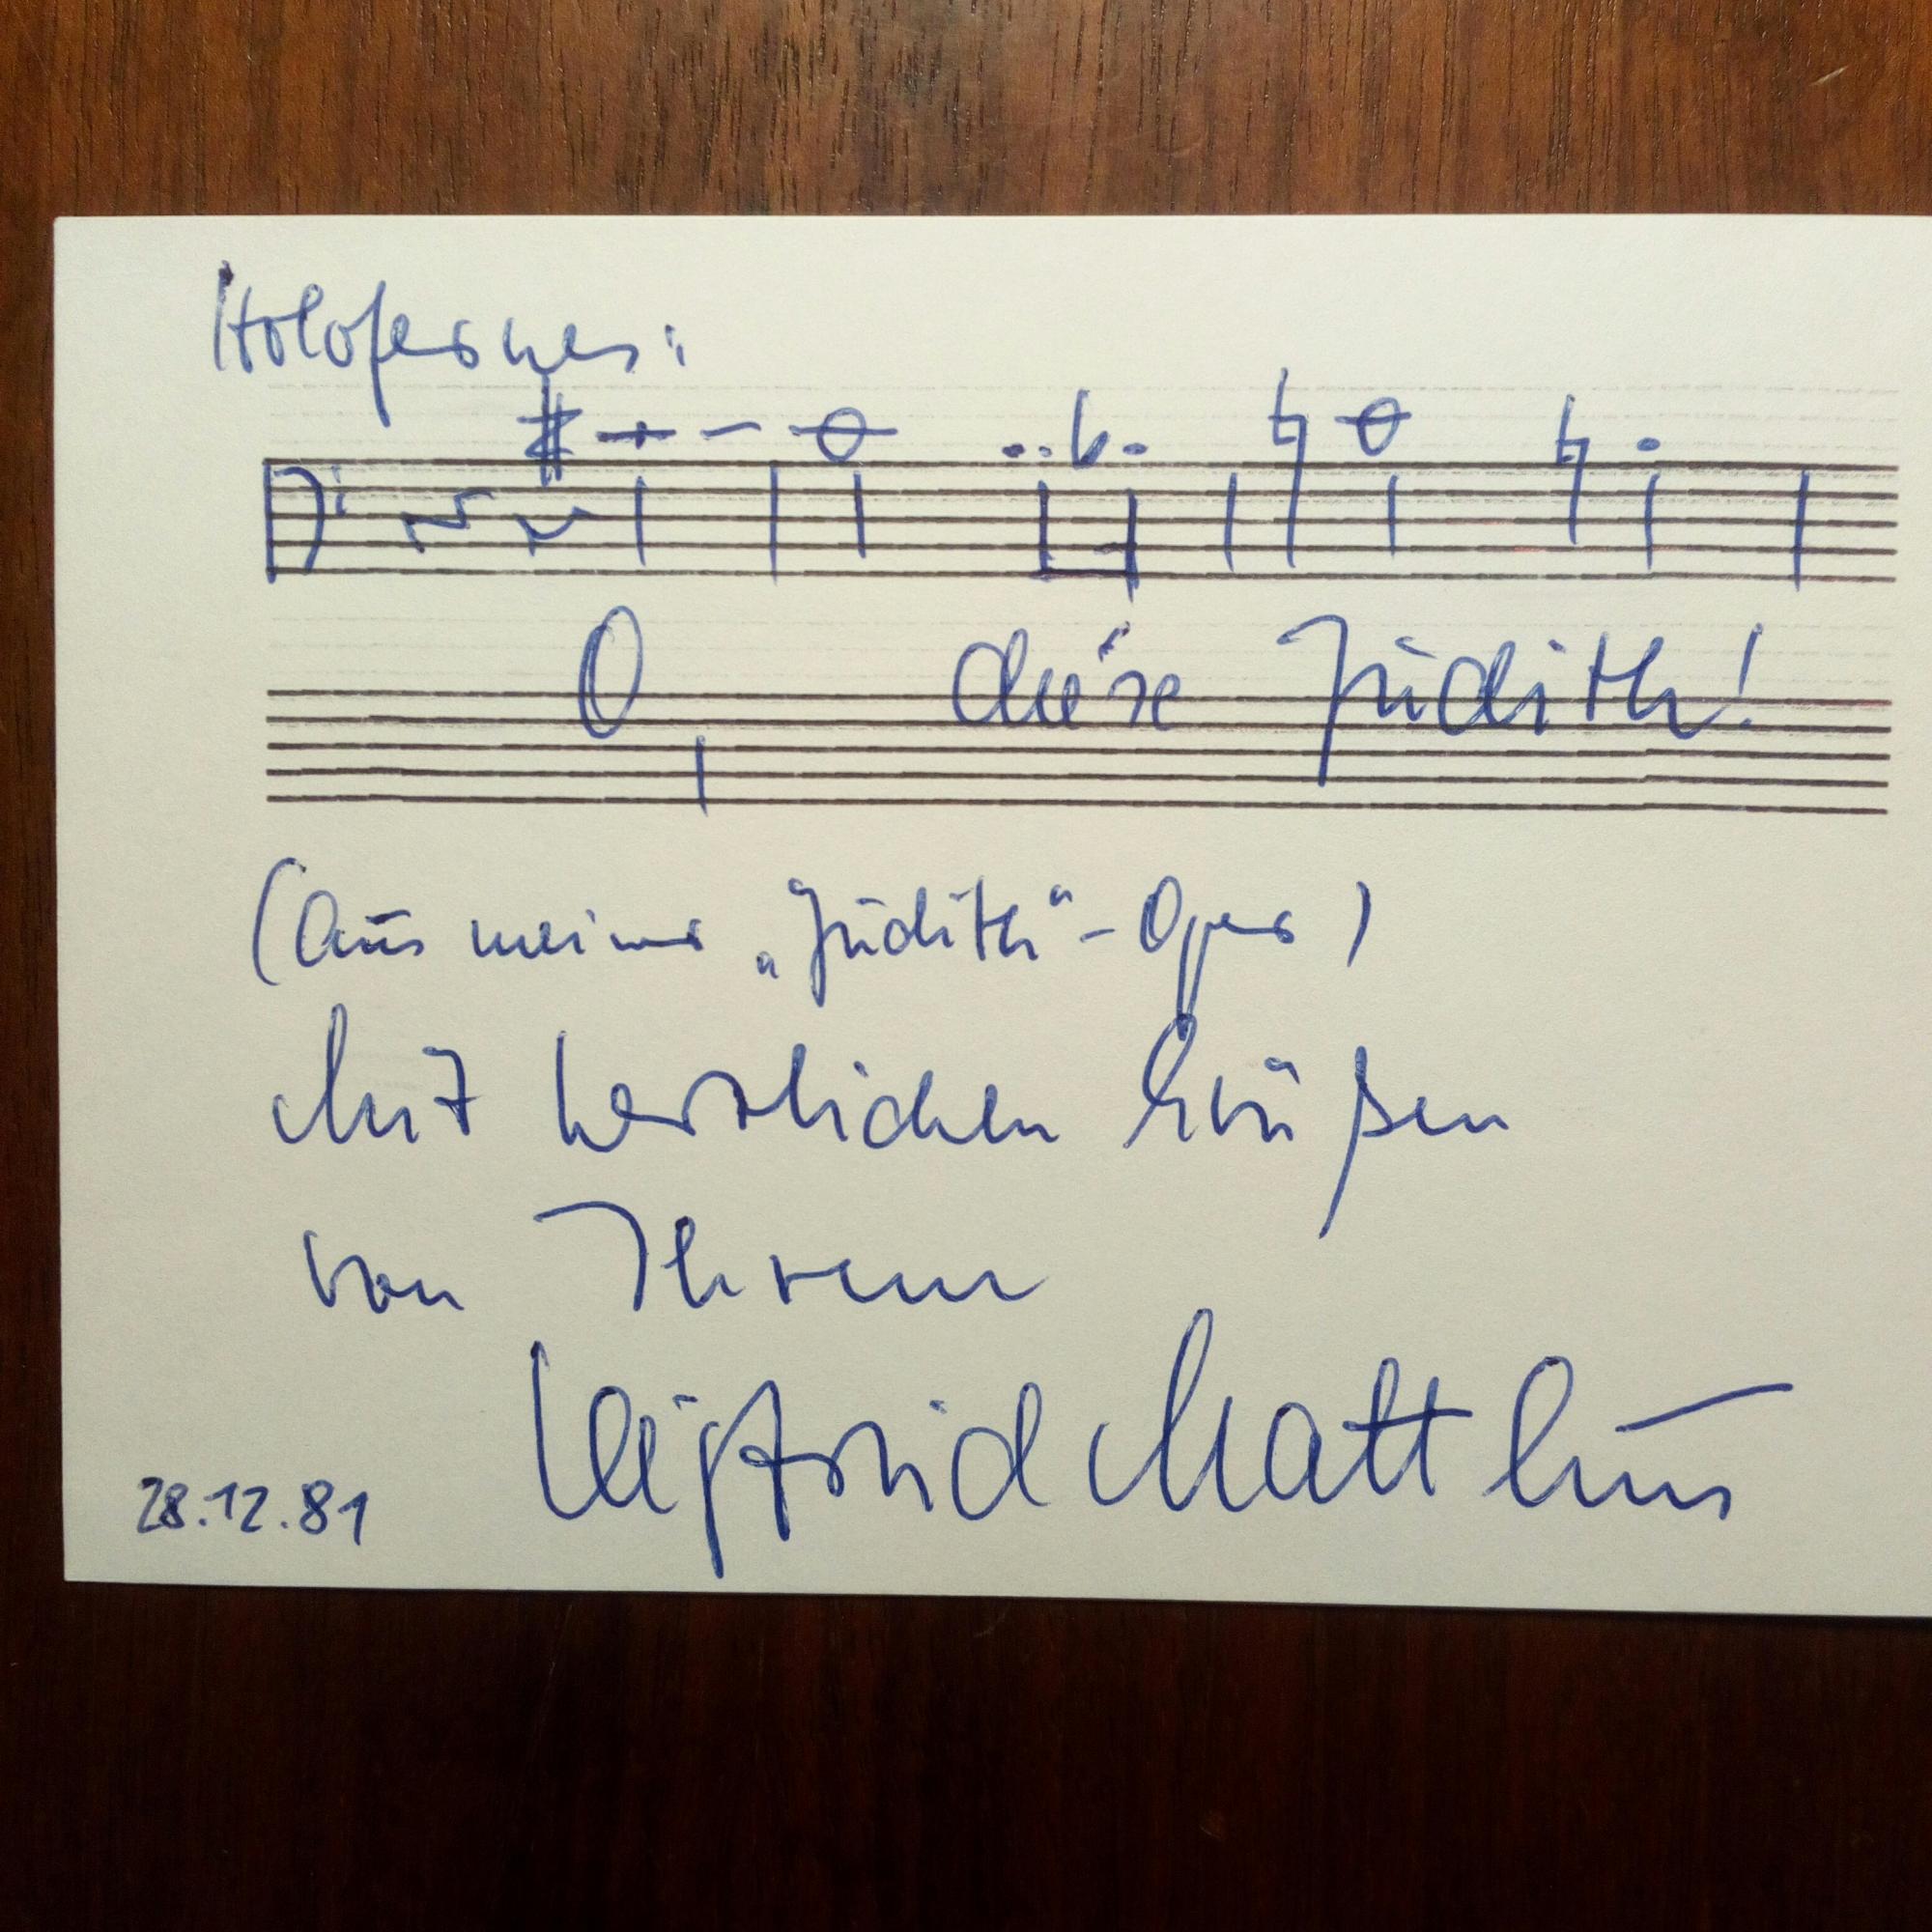 Holofernes:
O diese Judith!
(Aus meiner „Judith“-Oper)
Mit herzlichen Grüßen
von Ihrem
Siegfried Matthus
28.12.81